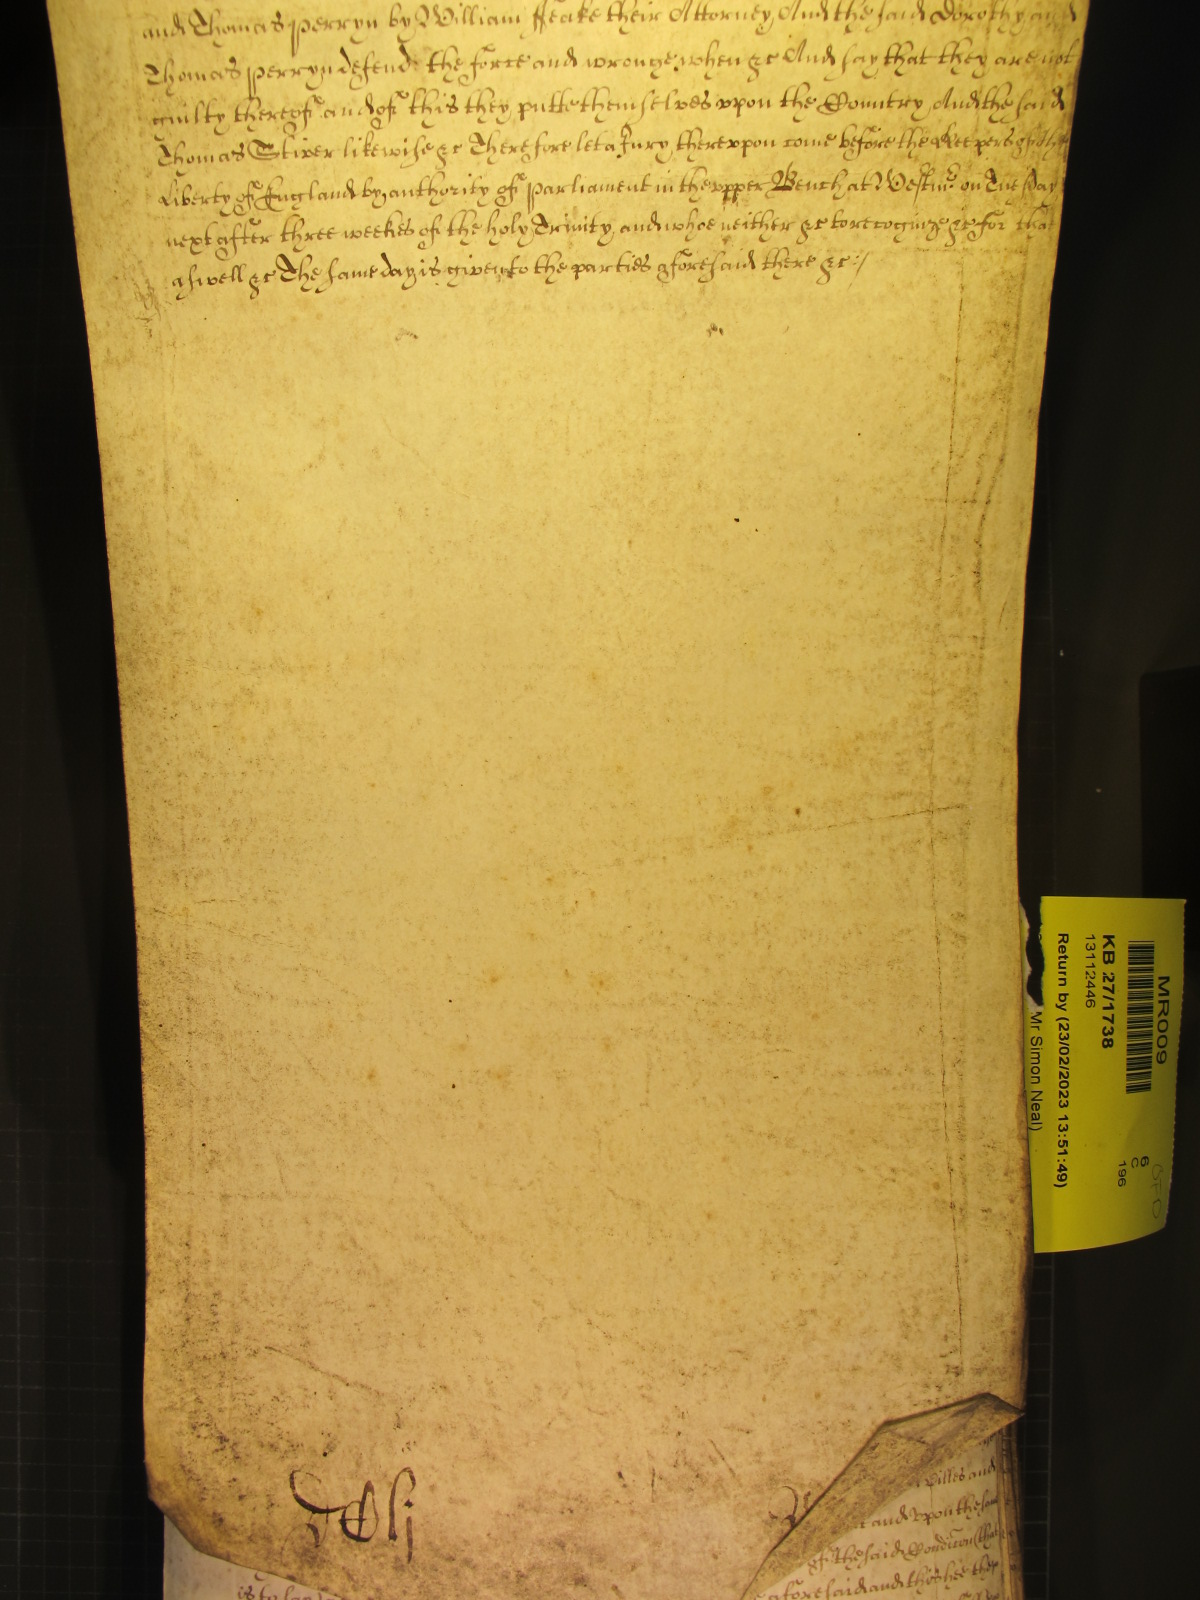 and Thomas Perryn by William ffeake their Attorney And the said Dorothy and
Thomas Perryn defend the force and wronge when &c And say that they are not
guilty thereof and of this they putte themselves vpon the Country And the said
Thomas Stiver likewise &c Therefore let a Jury therevpon come before the Keepers of the
Liberty of England by authority of Parliament in the vpper Bench at Westmr on Tuesday
next after three weekes of the holy Trinity and whoe neither &c to recognize &c for that
aswell &c The same day is given to the parties aforesaid there &c
MR009
KB 27/1738
13112446
Return by (23/02/2023 13:51:49)
Mr Simon Neal)
6
C
196
and
and vpon the said
of the said Condicon that
aforesaid and that hee the